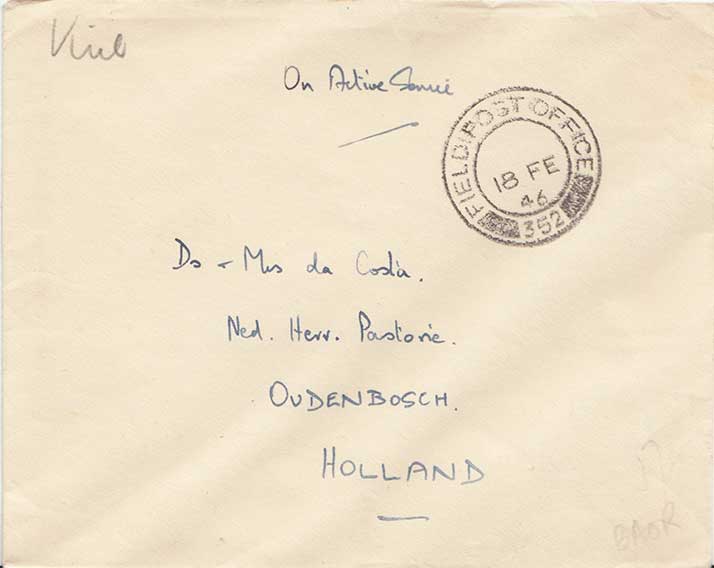 Kiel
On Active Service
FIELD POST OFFICE
18 FE
46
352
Ds - Mrs da Costa.
Ned. Herv. Pastorie.
OUDENBOSCH.
HOLLAND
BAOR